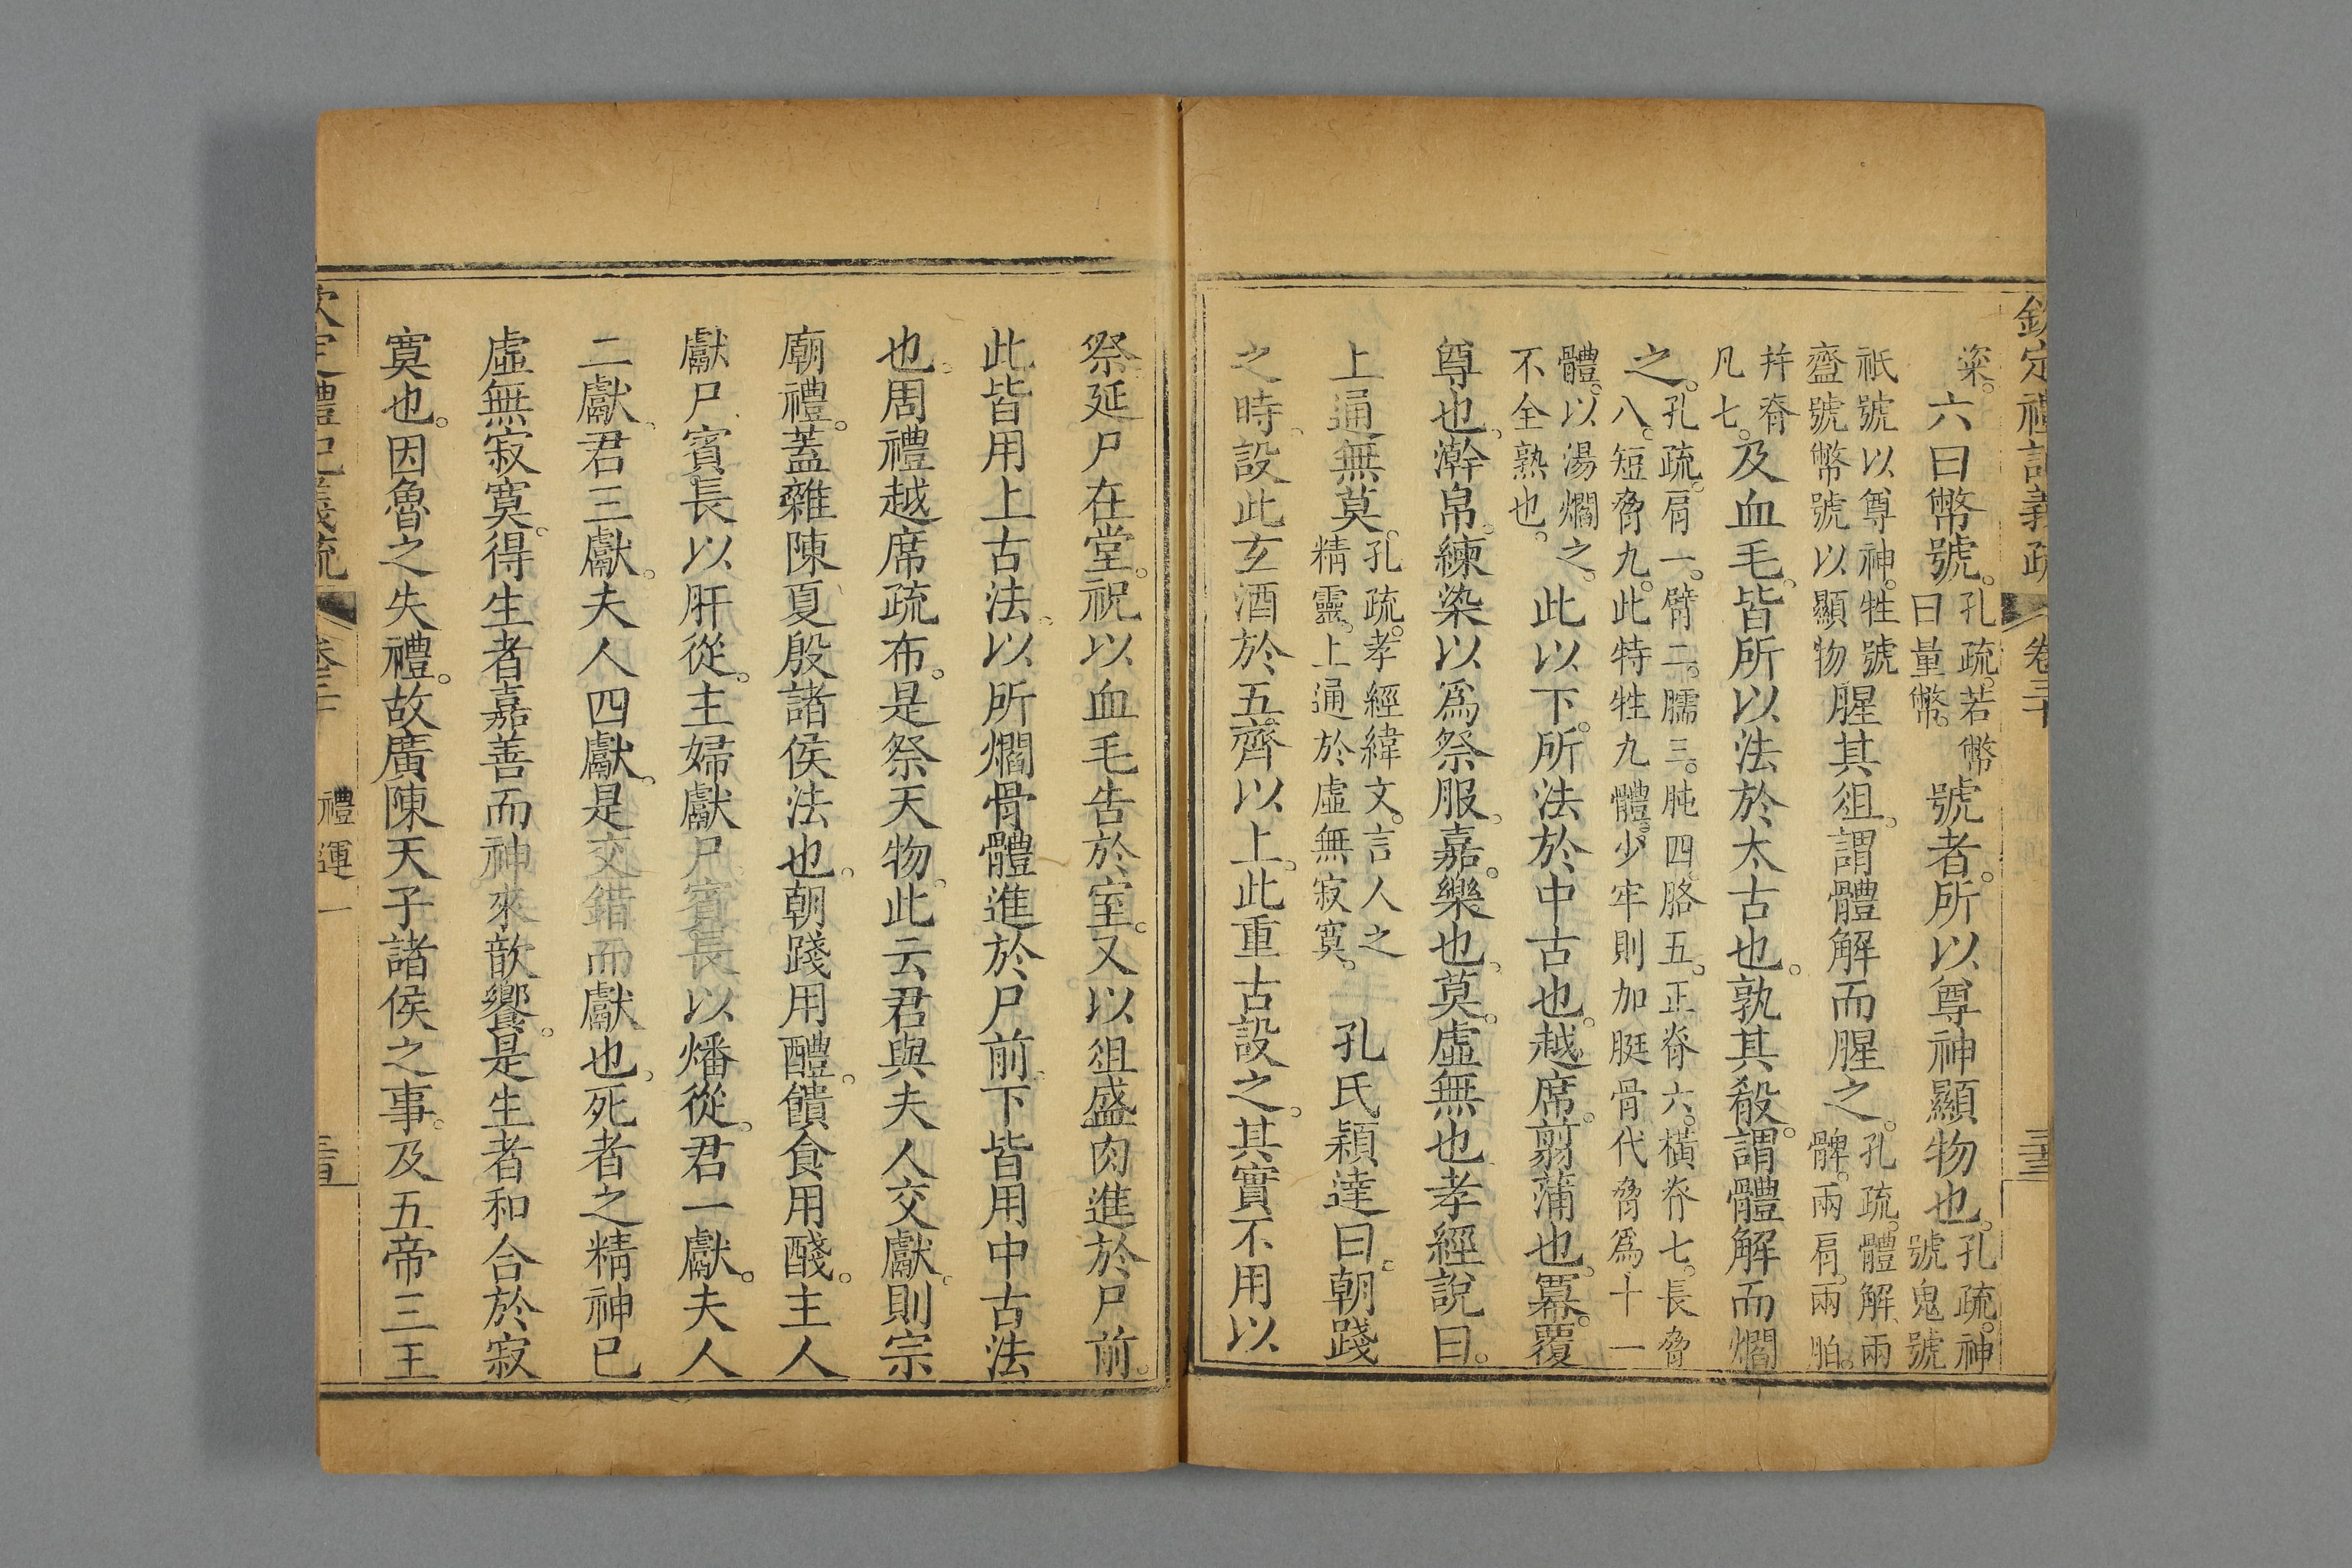 欽定禮記義疏 卷三十
粢。六曰幣號。孔疏。若幣曰量幣。號者。所以尊神顯物也。孔疏。神號鬼號
祇號以尊神。牲號齍號幣號以顯物腥其俎。謂體解而腥之。孔疏。體解、兩髀。兩肩。兩胉。
幷脊凡七。及血毛。皆所以法於太古也。孰其殽。謂體解而爓
之。孔疏。肩一。臂二。臑三。肫四。胳五。正脊六。橫脊七。長脅八。短脅九。此特牲九體。少牢則加脡骨代脅爲十一
體。以湯爓之。不全熟也。此以下。所法於中古也。越席。翦蒲也。冪。覆
尊也。澣帛。練染以爲祭服。嘉。樂也。莫。虛無也孝經說曰。
上通無莫。孔疏。孝經緯文。言人之精靈。上通於虛無寂寞。 孔氏穎達曰。朝踐
之時、設此玄酒於五齊以上。此重古設之。其實不用以
祭延尸在堂。祝以血毛告於室。又以俎盛肉進於尸前。
此皆用上古法、以所爓骨體進於尸前、下皆用中古法
也。周禮越席疏布。是祭天物。此云君與夫人交獻。則宗
廟禮。蓋雜陳夏殷諸侯法也。朝踐用醴。饋食用醆。主人
獻尸、賓長以肝從。主婦獻尸、賓長以燔從。君一獻。夫人
二獻、君三獻。夫人四獻。是交錯而獻也、死者之精神已
虛無寂寞。得生者嘉善而神來歆饗。是生者和合於寂
寞也。因魯之失禮。故廣陳天子諸侯之事。及五帝三王
欽定禮記義疏 卷三十 禮運一